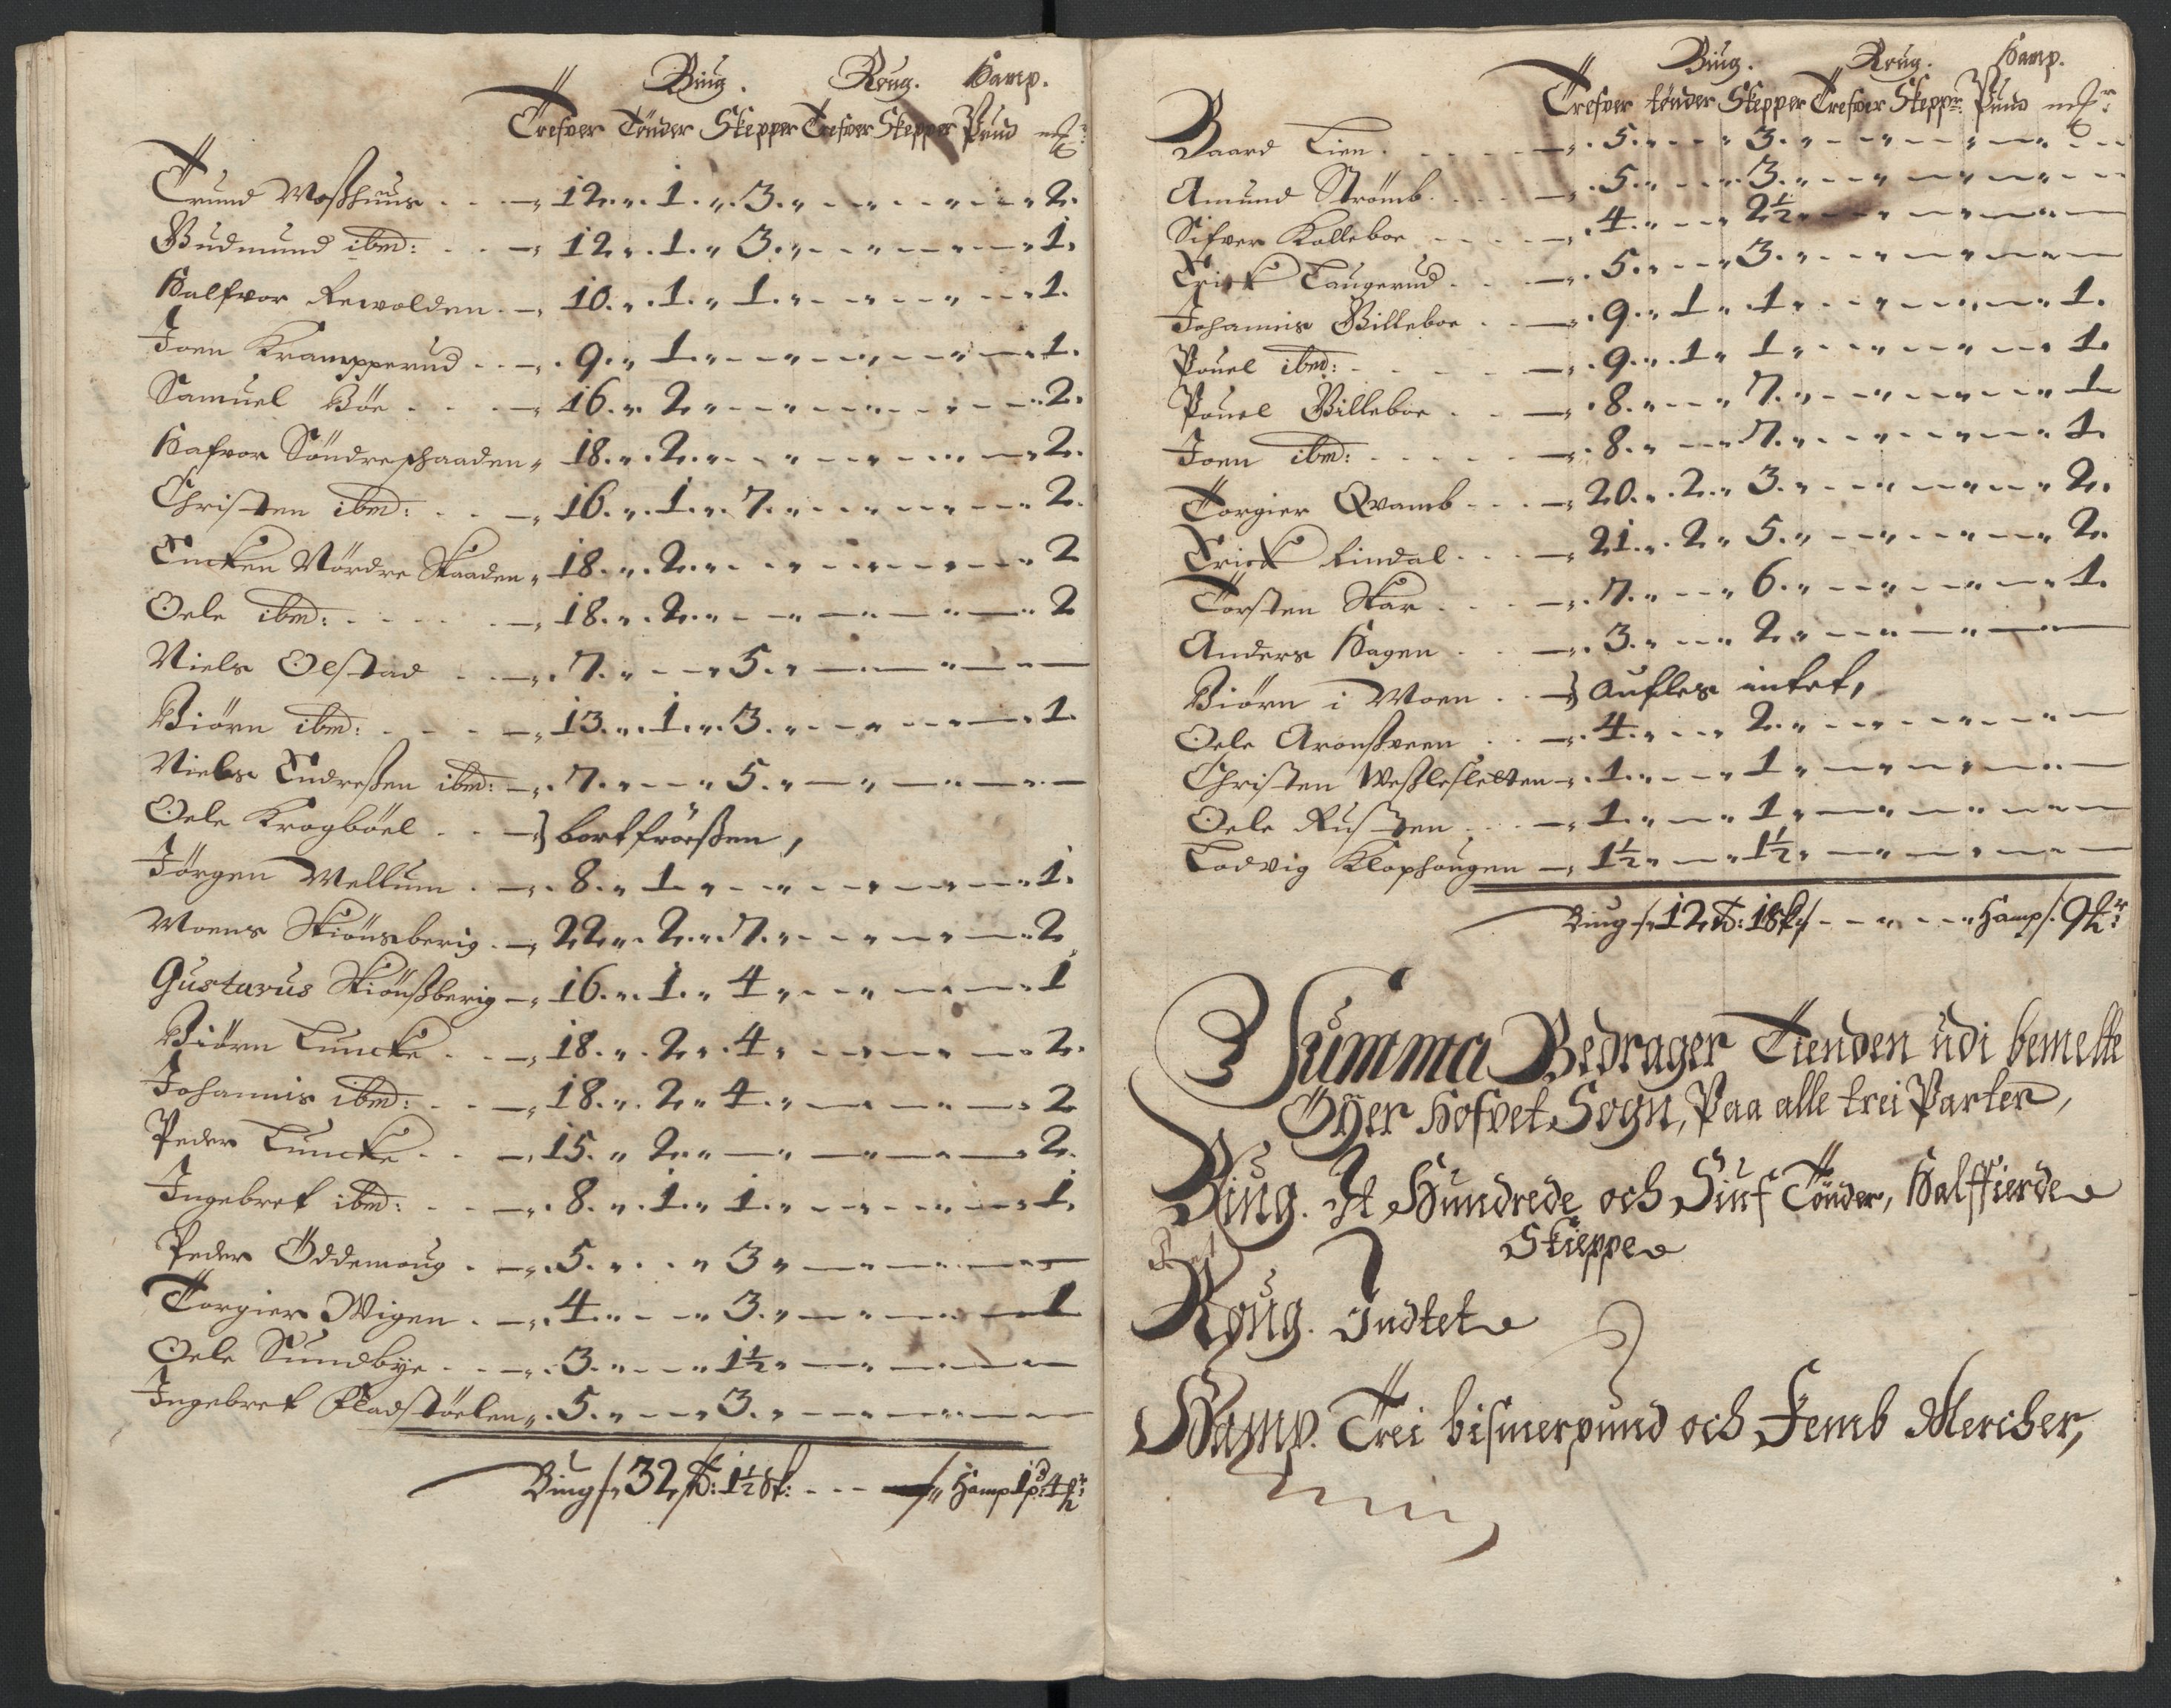 Biug. Roug. Hamp.
Trefver Tønder Skepper Trefver Skepper Pund
Trund Moßhuus - 12 " 1 " 3 " 2
Gudmund ibm: - 12 " 1 " 3 " 1
Halfvor Rewolden - 10 " 1 " 1 " 1
Joen Krampperud - 9 " 1 " 1
Samuel Böe - 16 " 2 " 2
Hafvor Söndreschaaden 18 " 2 " 2
Christen ibm: - 16 " 1 " 7 " 2
Encken Nördre Skaaden 18 " 2 " 2
Oele ibm: - 18 " 2 " 2
Niels Olstad - 7 " 5
Biörn ibm: - 13 " 1 " 3 " 1
Niels Endreßen ibm: - 7 " 5
Oele Krogböel - } bortfroeßen,
Jörgen Mellum - 8 " 1 " 1
Moens Skiönsberig - 22 " 2 " 7 " 2
Gustavus Skiönßberig - 16 " 1 " 4 " 1
Biörn Luncke - 18 " 2 " 4 " 2
Johannis ibm: - 18 " 2 " 4 " 2
Peder Luncke - 15 " 2 " 2
Ingebret ibm: - 8 " 1 " 1 " 1
Peder Öddemoug - 5 " 3
Torgier Wigen - 4 " 3 " 1
Oele Sundbye - 3 " 1½
Ingebret Fladstöelen 5 " 3
Biug 32 td: 1½ sk: Hamp 1 p: 4
Biug. Roug. Hamp.
Trefver tønder Skepper Trefver Skeppr Pund
Baard Lien - 5 " 3
Amund Strömb - 5 " 3
Sifver Kolleboe - 4 " 2½
Erick Laugerud - 5 " 3
Johannis Billeboe - 9 " 1 " 1 " 1
Pouel ibm: - 9 " 1 " 1 " 1
Pouel Billeboe - 8 " 7 " 1
Joen ibm: - 8 " 7 " 1
Torgier Qvamb - 20 " 2 " 3 " 2
Erick Rindal - 21 " 2 " 5 " 2
Torsten Skar - 7 " 6 " 1
Anders Hagen - 3 " 2
Biörn i Moen - } aufles intet,
Oele Aronßveen - 4 " 2
Christen Weßlesletten - 1 " 1
Oele Rusten - 1 " 1
Lodvig Klophougen - 1½ " 1½
Biug 12 td: 1 sk Hamp 9
Summa Bedrager Tienden udi bemelte
Öyer Hofvet Sogn, Paa alle trei Parter,
Biug. It Hundrede och Siuf Tönder, Halffierde
Skieppe
Roug. Indtet
Hamp. Trei bismerpund och Femb Mercher,